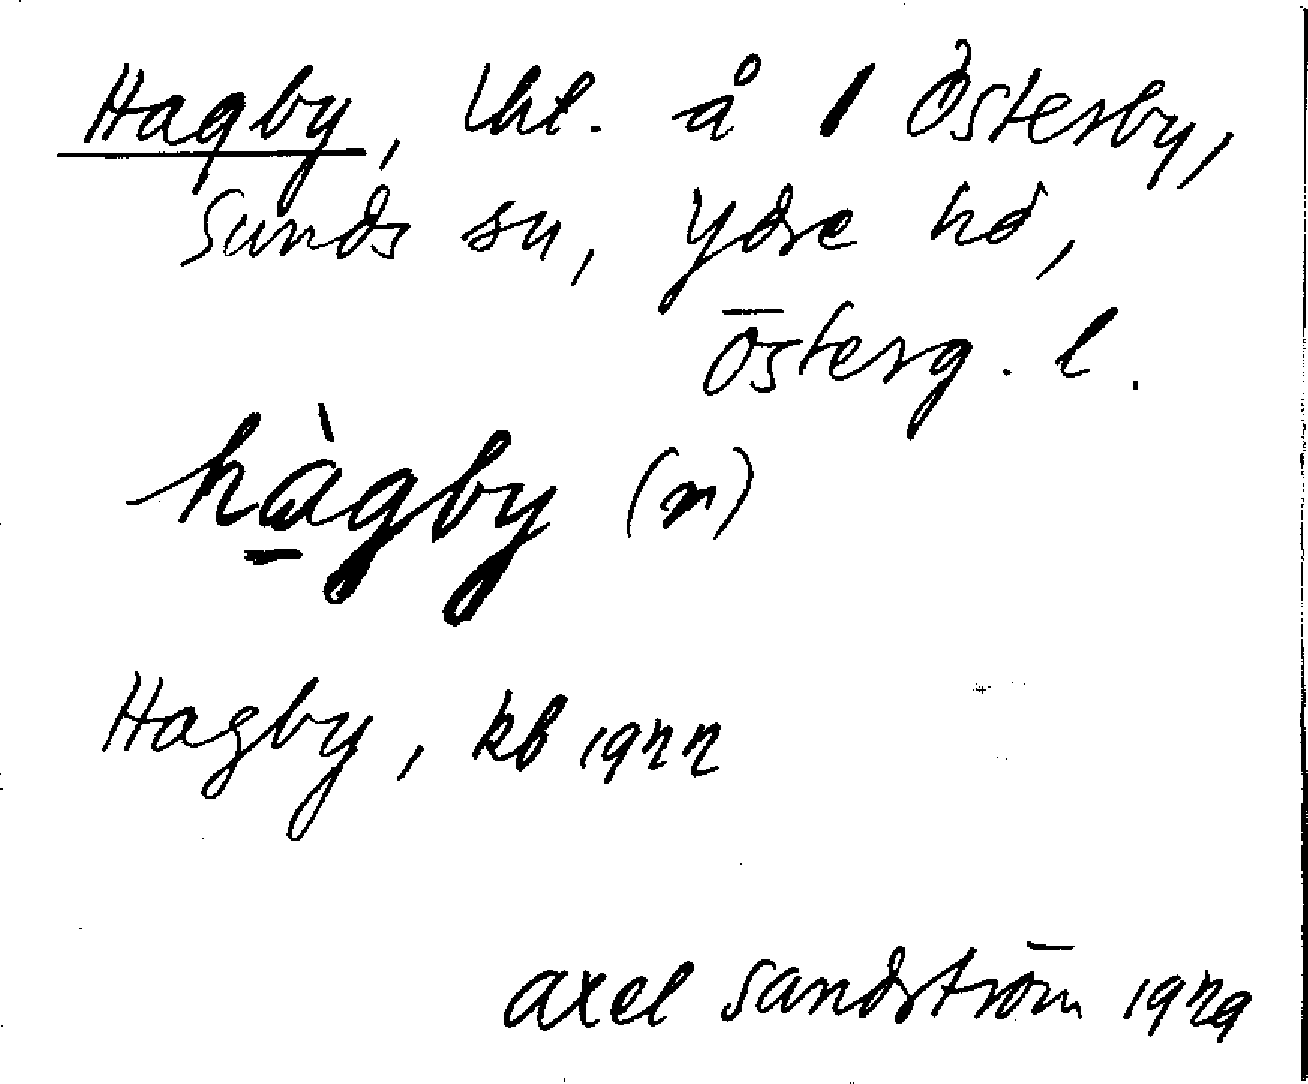 Hagby, lht. å 1 Österby,
Sunds sn, Ydre hd,
Österg. l.
hàgby (n)
Hagby, kb 1922
Axel Sandström 1929